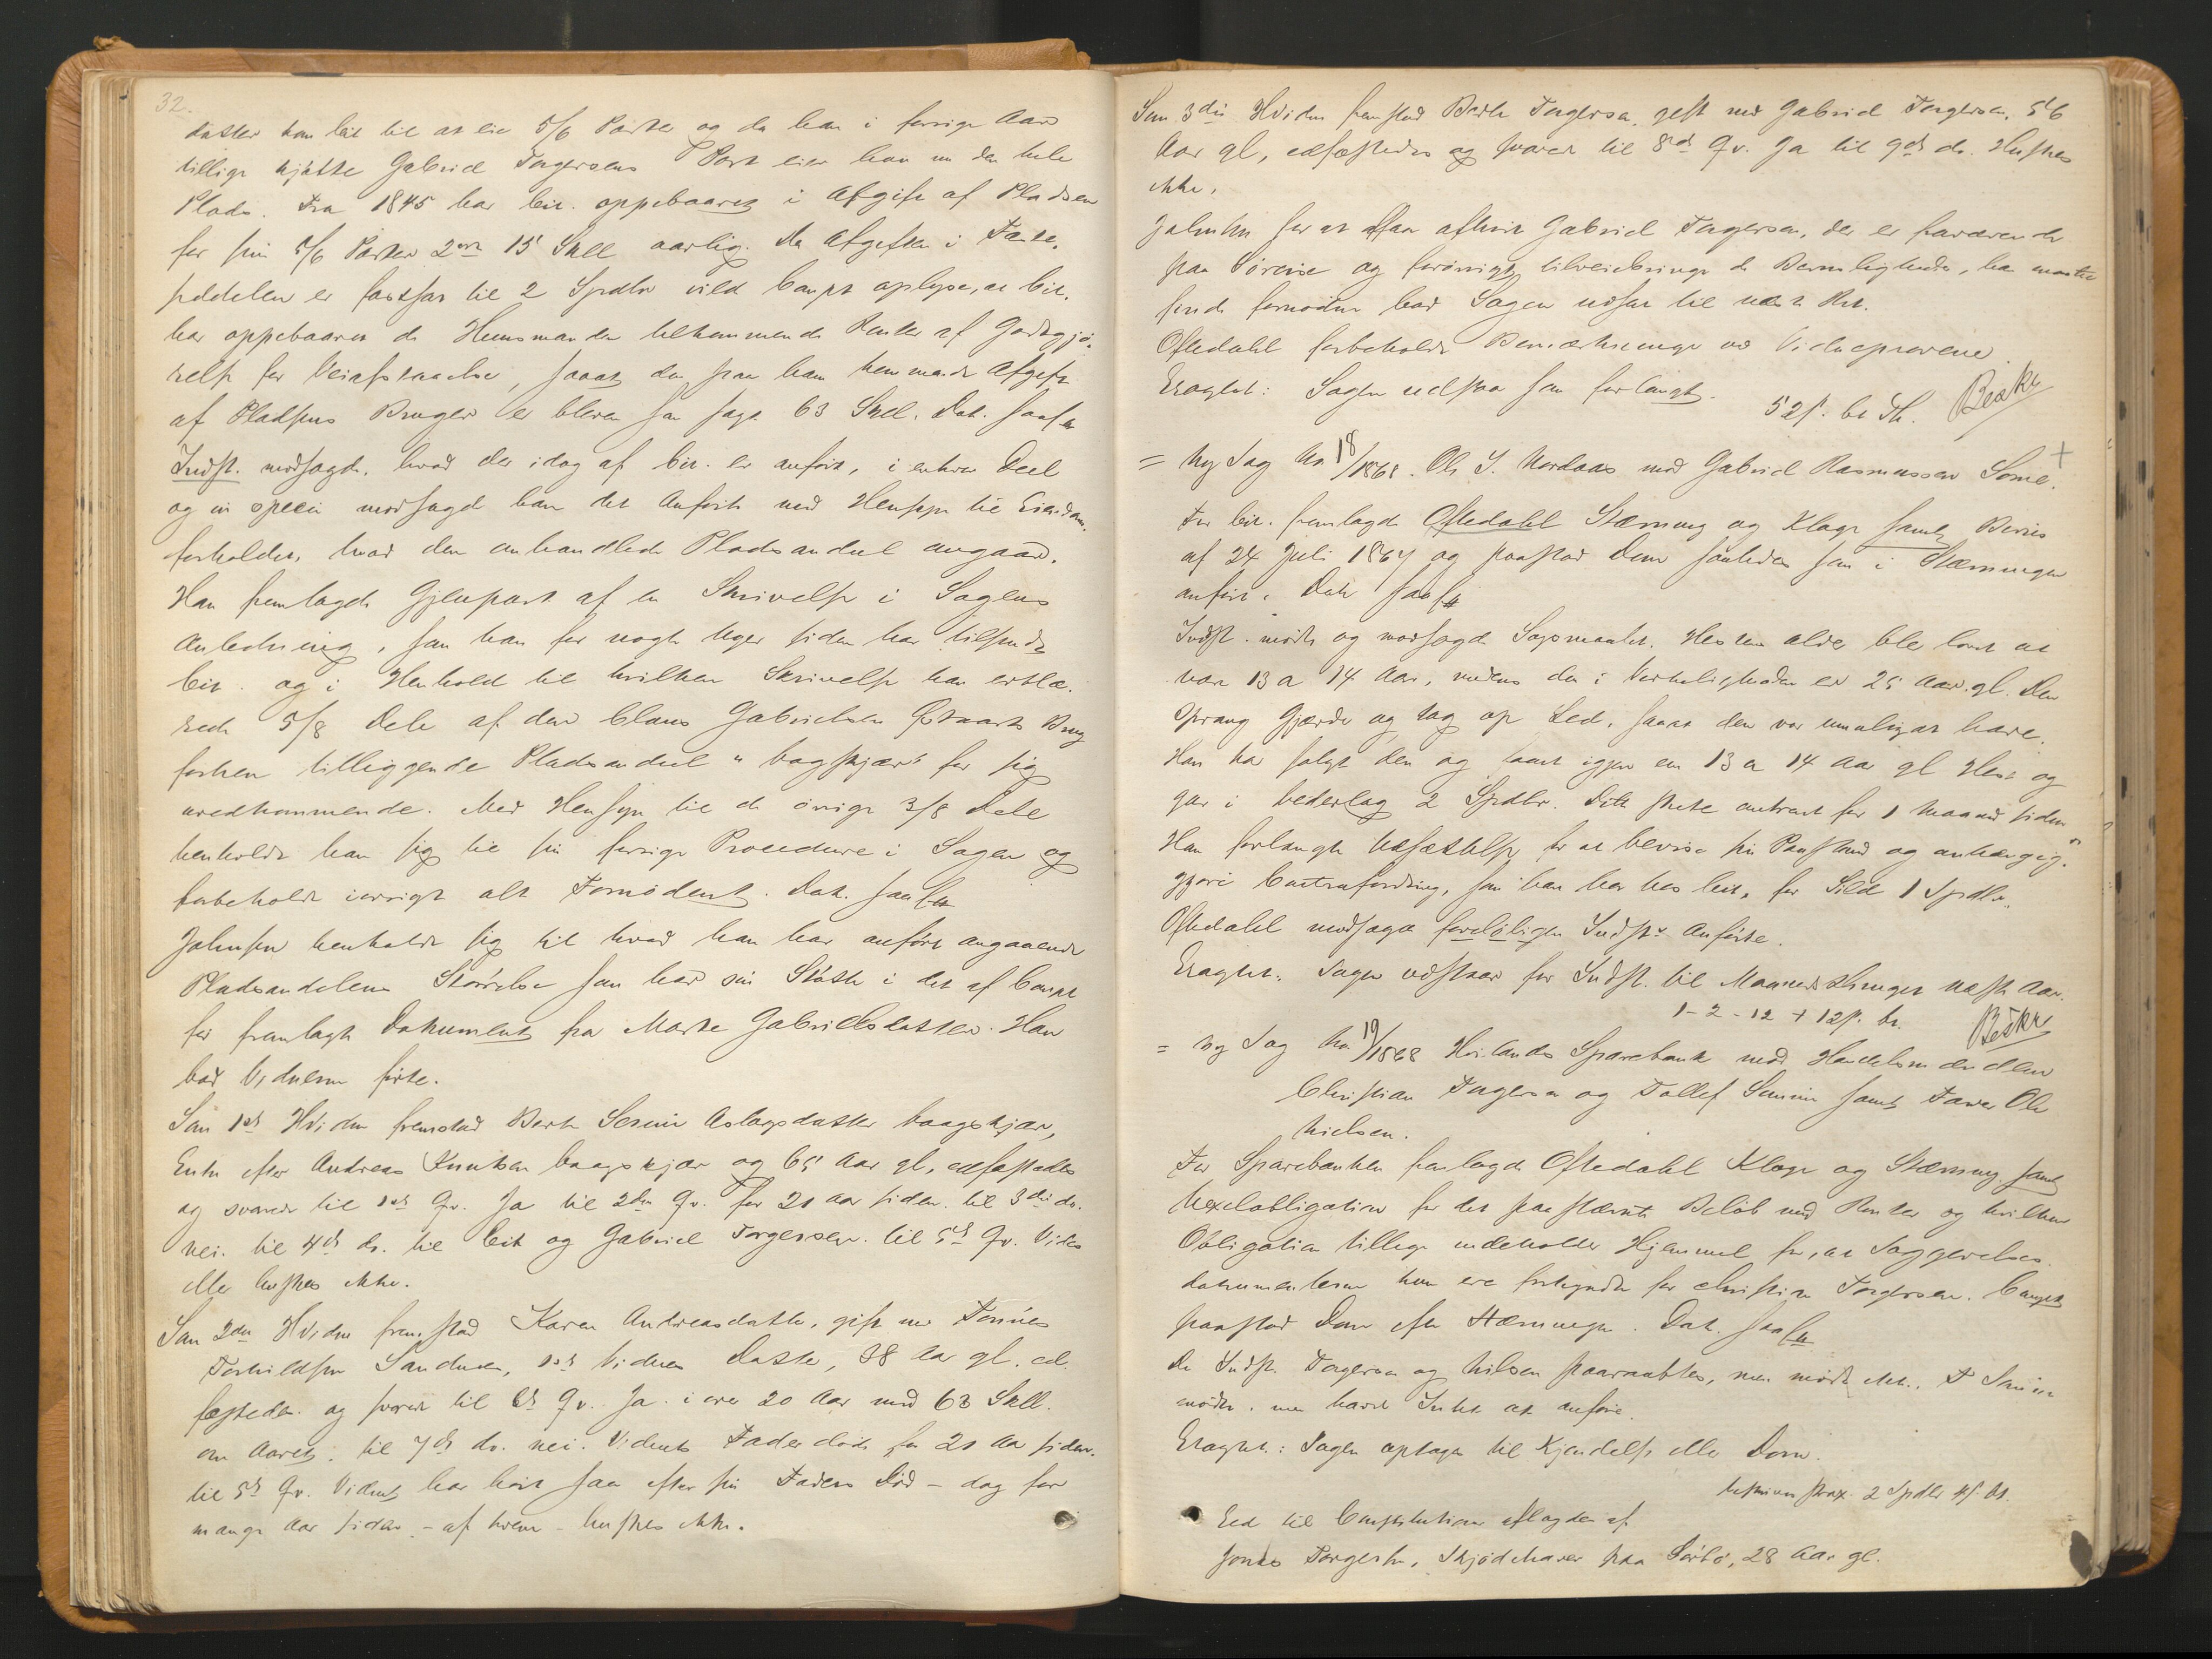 32.
datter kom Cit til at eie 5/6 Parter og da han i forrige Aar
tillige kjøbte Gabriel Torgersens Part eier han nu den hele
Plads. Fra 1845 har Cit. oppebaaret i Afgift af Pladsen
for sin 5/6 Parter 2 ort 15 Skill aarlig. Da Afgiften i Feste-
seddelen er fastsat til 2 Spdlr vild Compt oplyse, at Cit.
har oppebaaret de Huusmanden tilkommende Renter af Godtgjø-
relse for Veiafstaaelse, saaat den paa ham kommende Afgift
af Pladsens Bruger er bleven som sagt 63 Skill. Dok. saal.
Indst. modsagde, hvad der idag af Cit. er anført, i enhver Deel
og in specie modsagde han det Anførte med Hensyn til Eiendoms-
forholdet, hvad den omhandlede Pladsandeel angaar.
Han fremlagde Gjenpart af en Skrivelse i Sagens
Anledning, som han for nogle Uger siden har tilsendt
Cit. og i Henhold til hvilken Skrivelse han erklæ-
rede 5/8 Dele af den Claus Gabrielsen Brug
forhen tilliggende Pladsandeel "Vaagskjær" for sig
uvedkommende. Med Hensyn til de øvrige 3/8 Dele
henholdt han sig til sin forrige Procedure i Sagen og
forbeholdt iøvrigt alt Fornødent. Dok. saal.
Johnsen henholdt sig til hvad han har anført angaaende
Pladsandelens Størrelse som har sin Støtte i det af Compt
før fremlagte Dokument fra Marte Gabrielsdatter. Han
bad Vidnerne førte.
Som 1ste Vidne fremstod Berte Serine Aslagsdatter Vaagskjær,
Enke efter Andreas Knutsen Vaagskjær og 65 Aar gl., edfæstedes
og svarede til 1ste Qv. Ja til 2det Qv. for 21 Aar siden. til 3die do.
nei. til 4de do. til Cit og Gabriel Torgersen. til 5te Qv. Vides
eller huskes ikke.
Som 2det Vidne fremstod Karen Andreasdatter, gift med Tønnes
Torkildsen Sanduen, 1ste Vidnes Datter, 38 Aar gl. ed-
fæstedes og svarede til Qv. Ja. i over 20 Aar med 63 Skill.
om Aaret. til 7de do. nei. Vidnets Fader døde for 21 Aar siden.
til 5te Qv. Vidnet har hørt saa efter sin Faders Død – dog for
mange Aar siden – af hvem – huskes ikke.
Som 3die Vidne fremstod Berte Torgersen, gift med Gabriel Torgersen, 56
Aar gl., edfæstedes og svarede til 8de Qv. Ja til 9de do. Huskes
ikke.
Johnsen for at faa afhørt Gabriel Torgersen, der er fraværende
paa Søreise og forøvrigt tilveiebringe de Bevisligheder, han maatte
finde fornøden bad Sagen udsat til næste Ret.
Oftedahl forbeholdt Bemærkninger ved Vidneprovene.
Eragtet: Sagen udstaar som forlangt.
52 s. bt. Th. Beskr
= Ny Sag No 18/1868. Ole S. Nordaas mod Gabriel Rasmussen Some. +
For Cit. fremlagde Oftedahl Stævning og Klage samt Beviis
af 24 Juli 1867 og paastod Dom saaledes som i Stævningen
anført. Dok saal.
Indst. mødte og modsagde Søgsmaalet. Hestens Alder blev lovet at
være 13 a 14 Aar, medens den i Virkeligheden er 25 Aar gl. Den
sprang Gjærder og tog op Led, saaat den var umulig at have.
Han har solgt den og taaet igjen en 13 a 14 Aar gl Hest og
gav i Vederlag 2 Spdlr. Dette skete omtrent for 1 Maaned siden.
Han forlangte Udsættelse for at bevise sin Paastand og anhængig-
gjøre Contrafordring, som han har hos Cit. for Sild 1 Spdlr.
Oftedahl modsagde foreløbigen Indst. Anførte.
Eragtet. Sagen udstaar for Indst. til Maanedsthinget næste Aar.
1 – 2 – 12 + 12 s. bt. Beskr
= Ny Sag No 19/1868 Høilands Sparebank mod Handelsmændene
Christian Torgersen og Tollef Sømme samt Farver Ole
Nielsen.
For Sparebanken fremlagde Oftedahl Klage og Stævning samt
Vexelobligation for det paastævnte Beløb med Renter og hvilken
Obligation tillige indeholder Hjemmel for, at Søggerelses-
dokumenterne kun ere forkyndte for Christian Torgersen. Compt
paastod Dom efter Stævningen. Dok. saal.
De Indst. Torgersen og Nilsen paaraabtes, men mødte ikke. T Sømme
mødte, men havde Intet at anføre.
Eragtet: Sagen optages til Kjendelse eller Dom.
beskreven strax. 2 Spdlr 4 s. bt.
Eed til Constitutionen aflagdes af
Jonas Torgersen, Skjødehaver paa Sørbø, 28 Aar gl.